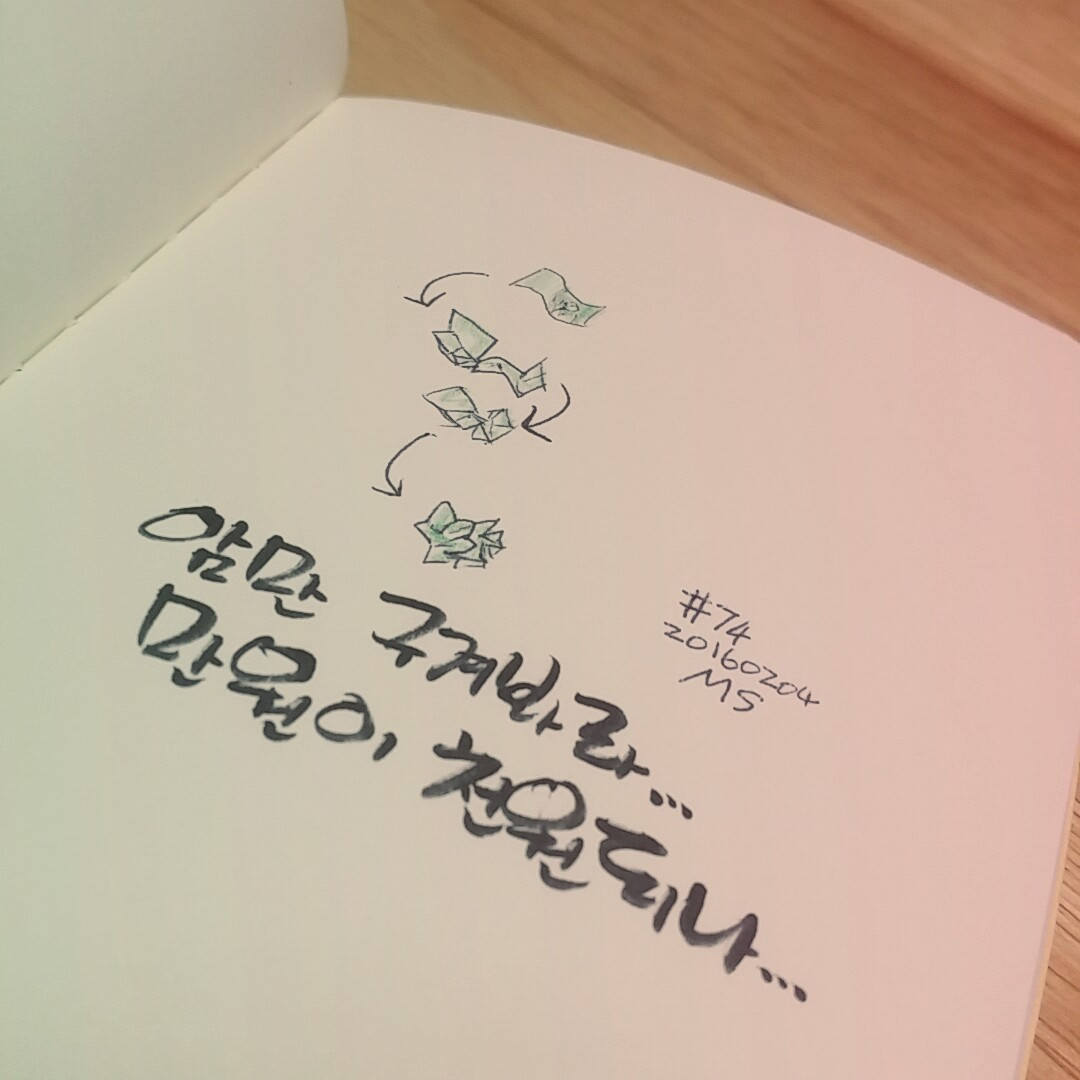 암만 구겨봐라...
만원이 천원되나...
#74
20160204
MS